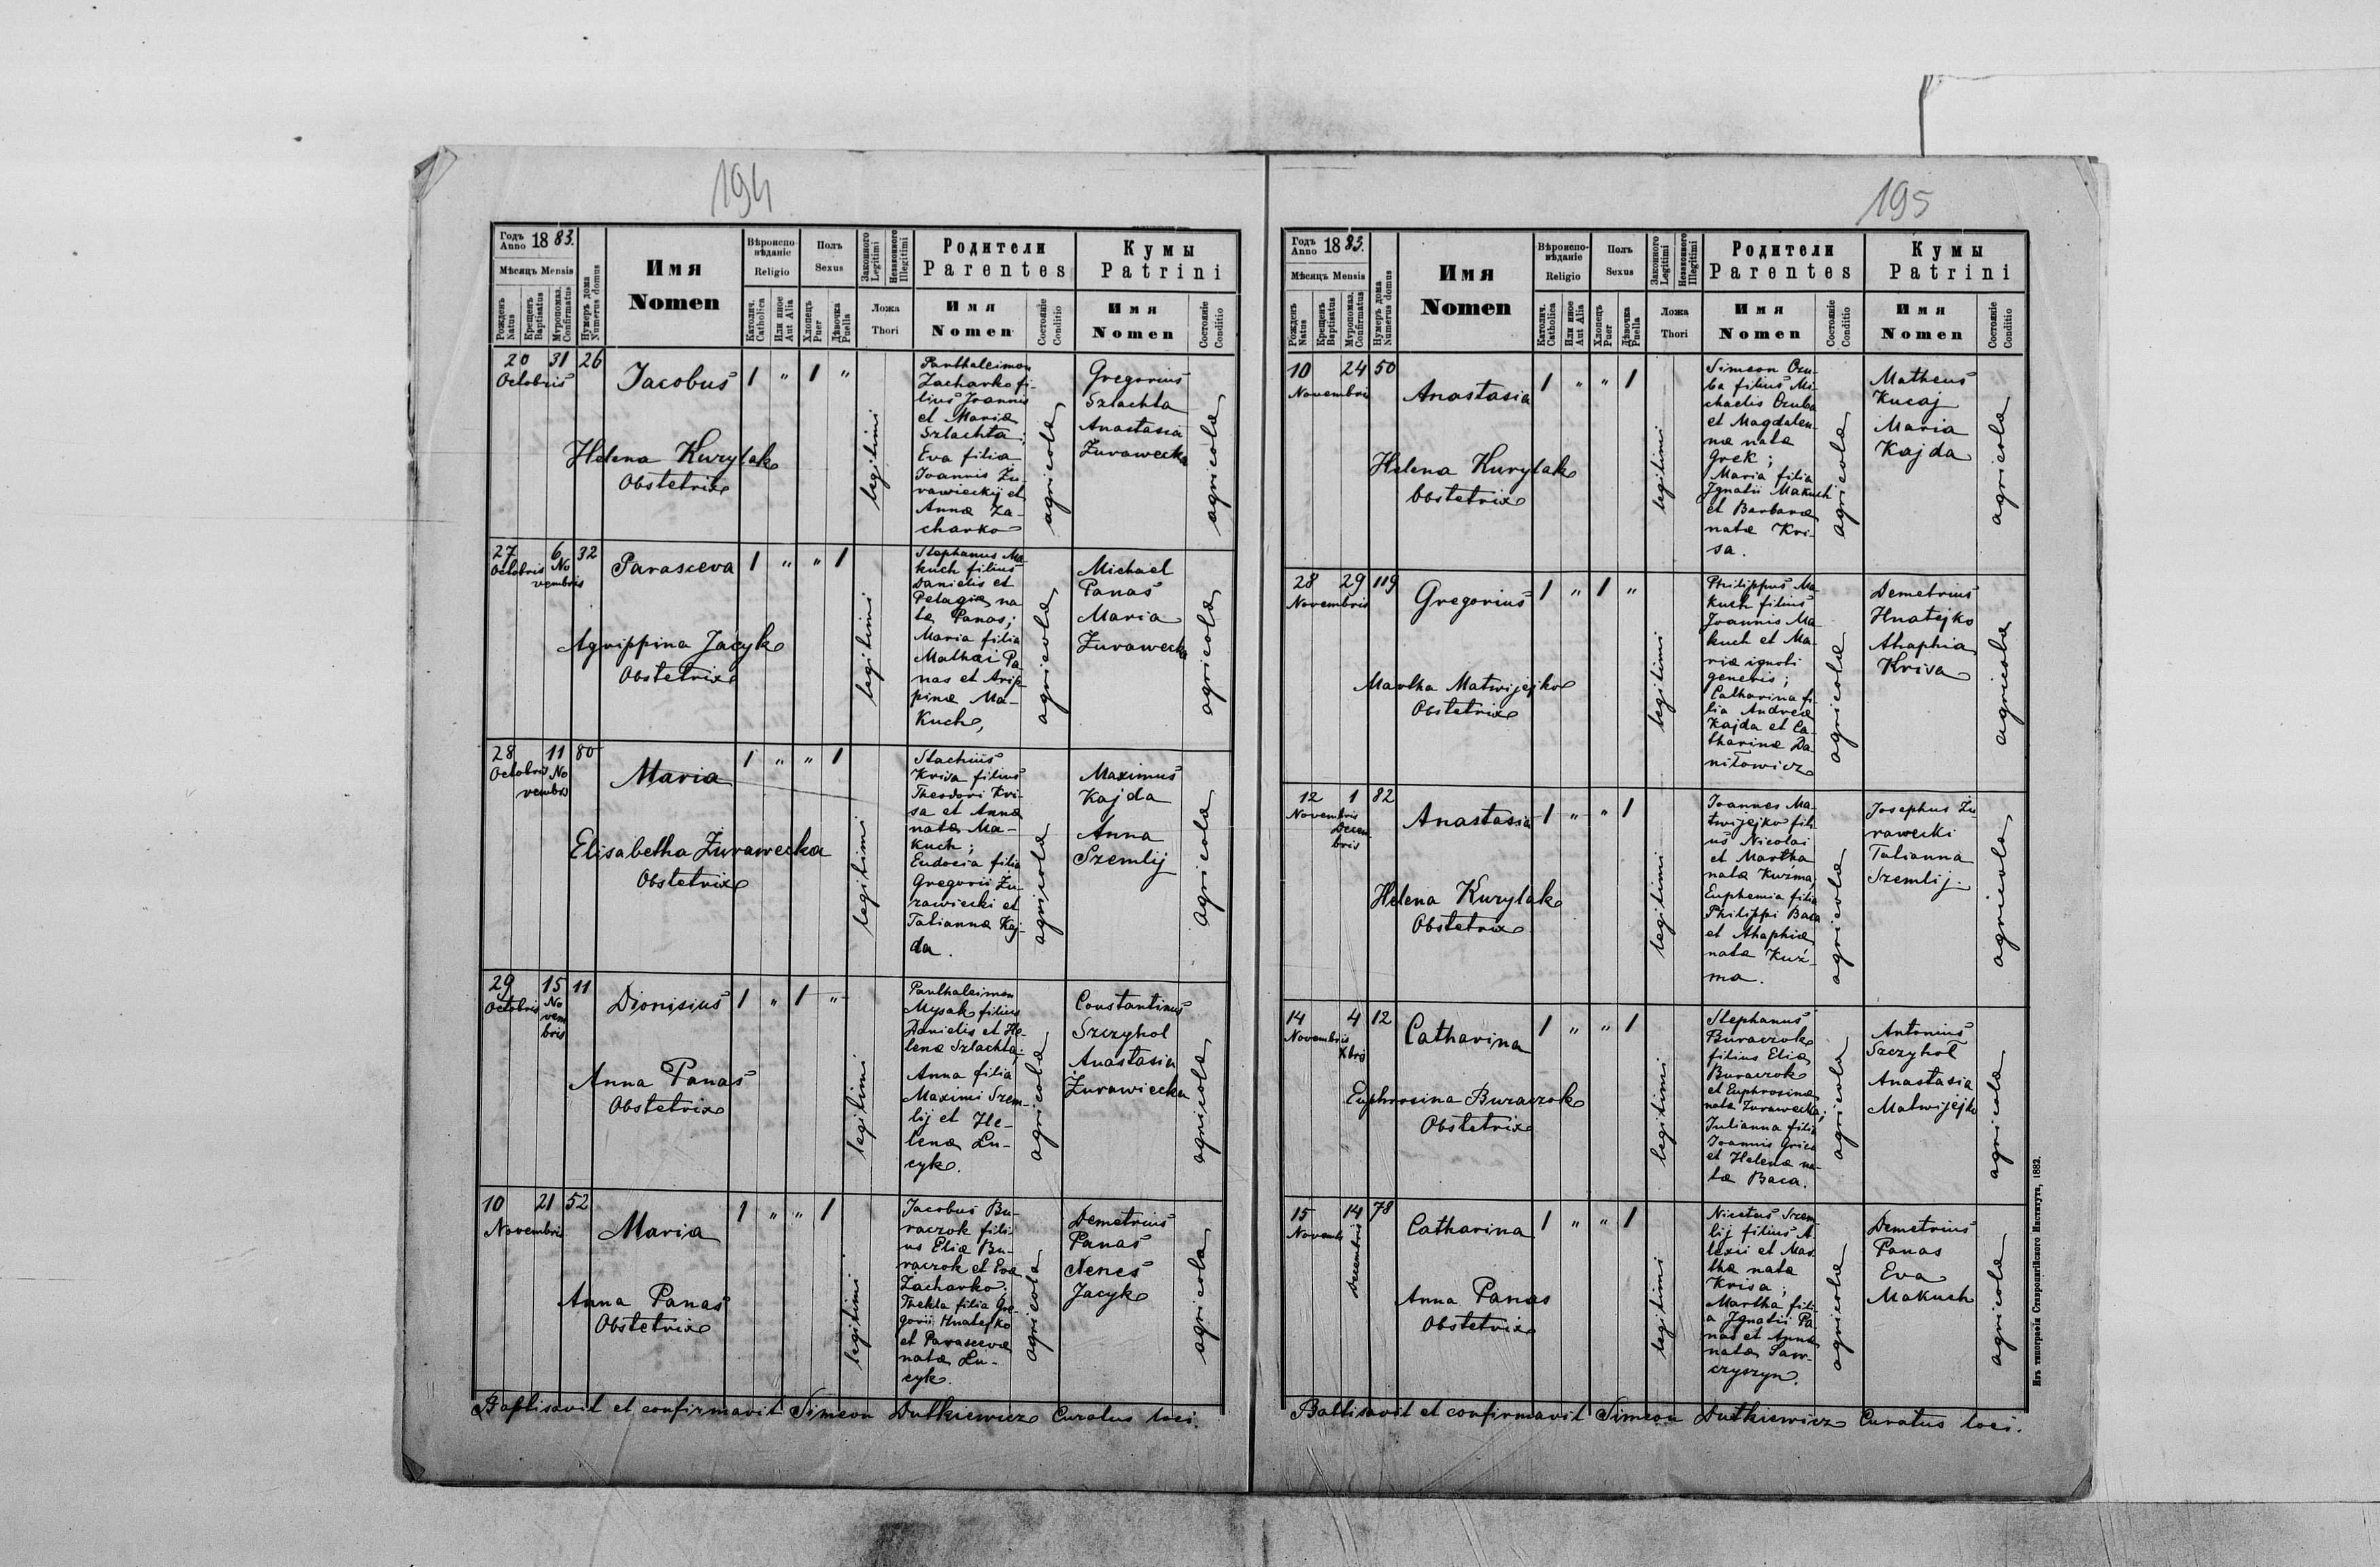 194
Годъ Anno 1883.
Мѣсяцъ Mensis
Рожденъ Natus
Крещенъ Baptisatus
Мѵропомаз. Confirmatus
Нумеръ дома Numerus domus
Имя
Nomen
Вѣроиспо-
вѣданіе
Religio
Католич. Catholica
Или иное Aut Alia
Полъ
Sexus
Хлопецъ Puer
Дѣвочка Puella
Законного Legitimi
Незаконного Illegitimi
Ложа
Thori
Родители
Parentes
Имя
Nomen
Состояніе Conditio
Кумы
Patrini
Имя
Nomen
Состояніе Conditio
20 31 26
Octobris
Jacobus 1 " 1 "
Helena Kurylak
Obstetrix
legitimi
Panthaleimon
Zacharko fi-
lius Joannis
et Mariæ
Szlachta;
Eva filia
Joannis Żu-
rawieckij et
Annæ Za-
charko
agricolæ
Gregorius
Szlachta
Anastasia
Żurawecka
agricolæ
27 6 32
Octobris No
vembris
Parasceva 1 " " 1
Agrippina Jacyk
Obstetrix
legitimi
Stephanus Ma-
kuch filius
Danielis et
Pelagiæ na
tæ Panas;
Maria filia
Mathæi Pa
nas et Arip-
pinæ Ma-
kuch,
agricolæ
Michael
Panas
Maria
Żurawecka
agricolæ
28 11 80
Octobris No
vembris
Maria 1 " " 1
Elisabetha Żurawecka
Obstetrix
legitimi
Stachius
Krisa filius
Theodori Kri-
sa et Annæ
natæ Ma-
kuch;
Eudocia filia
Gregorii Żu-
rawiecki et
Tatiannæ Kaj-
da.
agricolæ
Maximus
Kajda
Anna
Szemlij
agricola
29 15 11
Octobris No
vem
bris
Dionisius 1 " 1 "
Anna Panas
Obstetrix
legitimi
Panthaleimon
Mysak filius
Danielis et He-
lenæ Szlachta;
Anna filia
Maximi Szem-
lij et He-
lenæ Lu-
cyk.
agricolæ
Constantinus
Szczyhol
Anastasia
Żurawiecka
agricolæ
10 21 52
Novembris
Maria 1 " " 1
Anna Panas
Obstetrix
legitimi
Jacobus Bu-
raczok fili-
us Eliæ Bu-
raczok et Evæ
Zacharko;
Thekla filia Gre-
gorii Hnatejko
et Parascevæ
natæ Lu-
cyk.
agricolæ
Demetrius
Panas
Jacyk
agricola
Baptisavit et confirmavit Simeon Dutkiewicz Curatus loci.
195
Годъ Anno 1883.
Мѣсяцъ Mensis
Рожденъ Natus
Крещенъ Baptisatus
Мѵропомаз. Confirmatus
Нумеръ дома Numerus domus
Имя
Nomen
Вѣроиспо-
вѣданіе
Religio
Католич. Catholica
Или иное Aut Alia
Полъ
Sexus
Хлопецъ Puer
Дѣвочка Puella
Законного Legitimi
Незаконного Illegitimi
Ложа
Thori
Родители
Parentes
Имя
Nomen
Состояніе Conditio
Кумы
Patrini
Имя
Nomen
Состояніе Conditio
10 24 50
Novembris
Anastasia 1 " " 1
Helena Kurylak
Obstetrix
legitimi
Simeon Ozu-
ba filius Mi-
chaelis Ozuba
et Magdalen-
næ natæ
Grek;
Maria filia
Ignatii Makuch
et Barbaræ
natæ Kri-
sa.
agricolæ
Matheus
Kucaj
Maria
Kajda
agricola
28 29 119
Novembris
Gregorius 1 " 1 "
Martha Matwijejko
Obstetrix
legitimi
Philippus Ma-
kuch filius
Joannis Ma-
kuch et Ma-
riæ ignoti
generis;
Catharina fi-
lia Andreæ
Kajda et Ca-
tharinæ Da-
niłowicz
agricolæ
Demetrius
Hnatejko
Ahaphia
Krisa
agricolæ
12 1 82
Novembris
Decem
bris
Anastasia 1 " " 1
Helena Kurylak
Obstetrix
legitimi
Joannes Ma-
twijejko fili-
us Nicolai
et Martha
natæ Kuzma;
Euphemia filia
Philippi Baca
et Ahaphiæ
natæ Kuź-
ma.
agricolæ
Josephus Żu
rawecki
Tatianna
Szemlij.
agricola
14 4 12
Novembris
Xbris
Catharina 1 " " 1
Euphrosina Buraczok
Obstetrix
legitimi
Stephanus
Buraczok
filius Eliæ
Buraczok
et Euphrosinæ
natæ Żurawecka;
Julianna filia
Joannis Grica
et Helenæ na-
tæ Baca.
agricolæ
Antonius
Szczyhoł
Anastasia
Matwijejko
agricolæ
15 14 78
Novemb
Decembris
Catharina 1 " " 1
Anna Panas
Obstetrix
legitimi
Nicetas Szem-
lij filius A-
lexii et Mar-
thæ natæ
Krisa;
Martha fili-
a Ignatii Pa-
nas et Annæ
natæ Saw-
czyszyn.
agricolæ
Demetrius
Panas
Eva
Makuch
agricolæ
Baptisavit et confirmavit Simeon Dutkiewicz Curatus loci.
Изъ типографіи Ставропигійского Института, 1882.